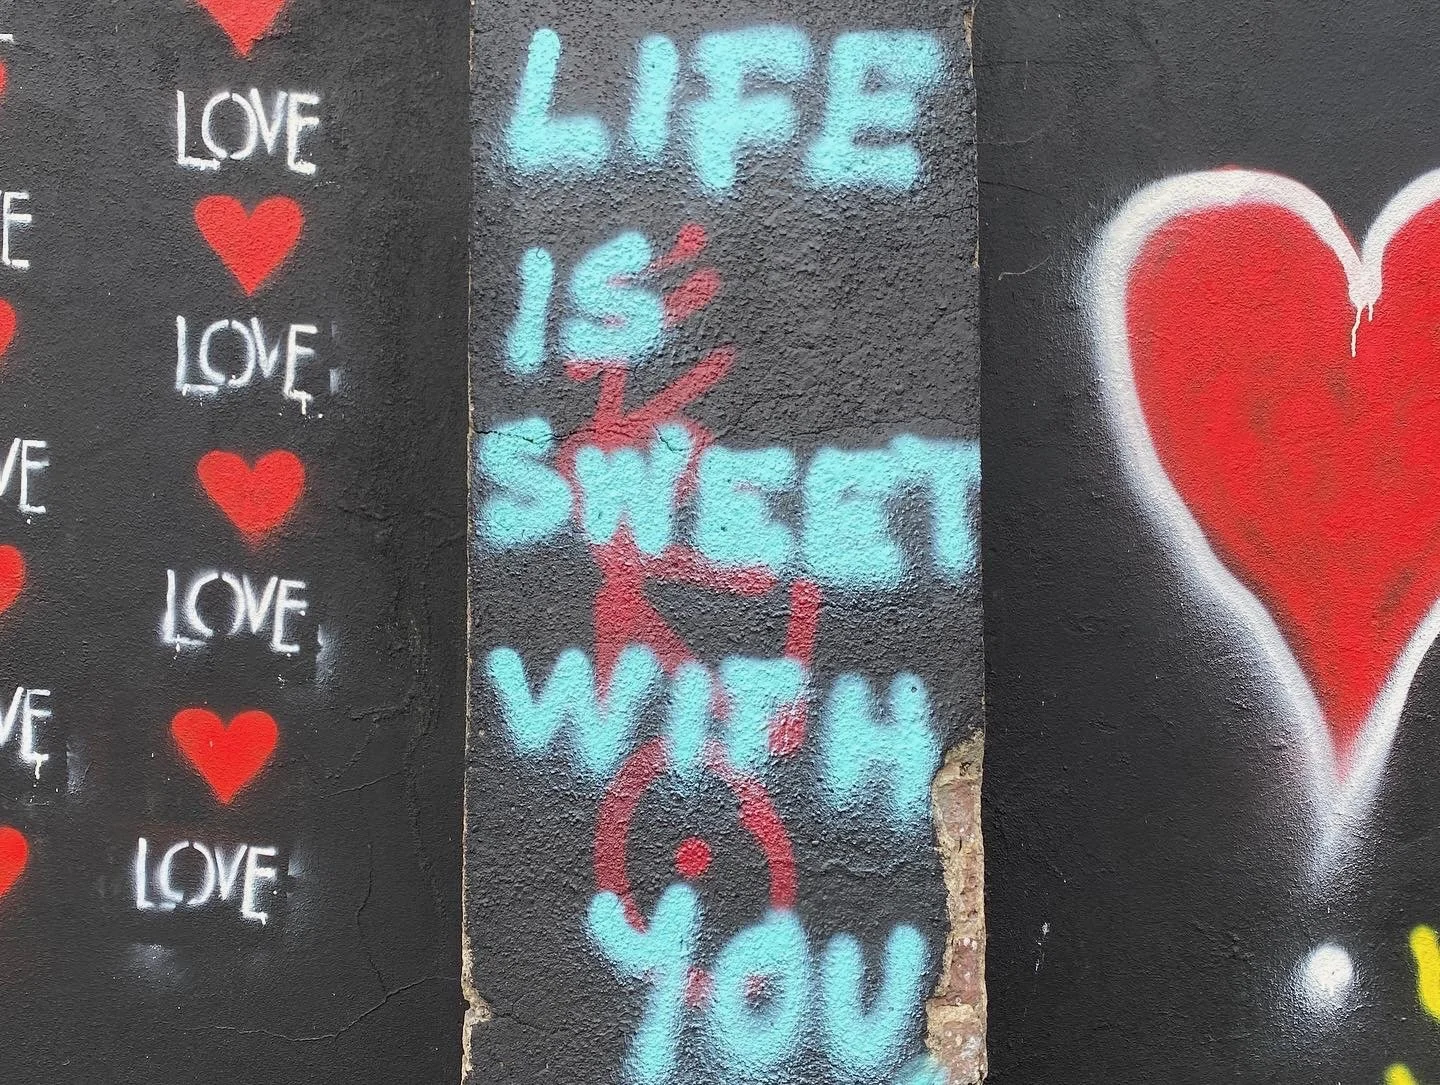 LOVE
LOVE
LOVE
LOVE
LIFE
IS
SWEET
WITH
YOU